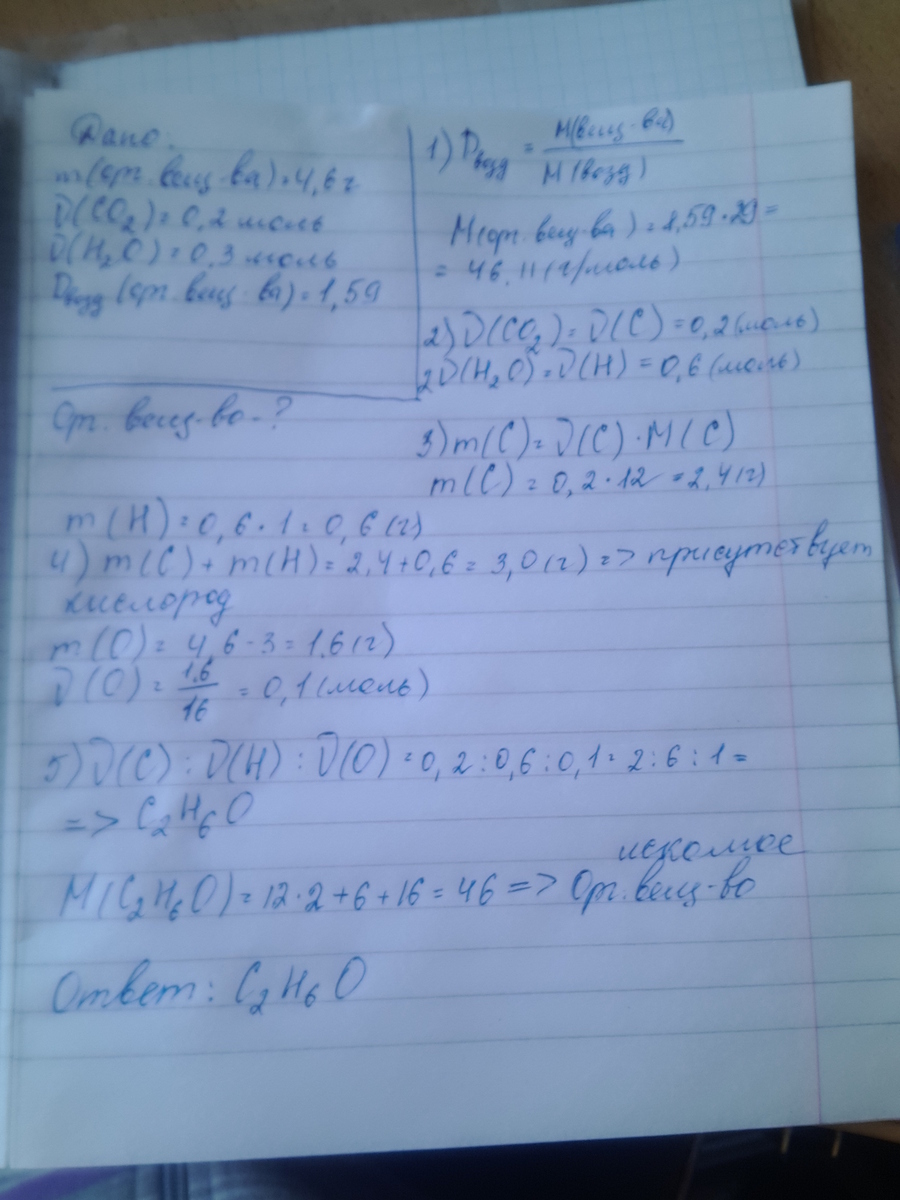 Дано:
m(орг. вещ-ва)=4,6 г
ν(CO₂)=0,2 моль
ν(H₂O)=0,3 моль
Dвозд (орг. вещ-ва)=1,59
Орг. вещ-во-?
1) Dвозд = M(вещ-ва) / M(возд)
M(орг. вещ-ва)=1,59·29=
= 46,11 (г/моль)
2) ν(CO₂)=ν(C)=0,2(моль)
2ν(H₂O)=ν(H)=0,6(моль)
3) m(C)=ν(C)·M(C)
m(C)=0,2·12=2,4(г)
m(H)=0,6·1=0,6(г)
4) m(C)+m(H)=2,4+0,6=3,0(г)=> присутствует
кислород
m(O)=4,6-3=1,6(г)
ν(O)=1,6/16=0,1(моль)
5) ν(C):ν(H):ν(O)=0,2:0,6:0,1=2:6:1=
=> C₂H₆O
искомое
M(C₂H₆O)=12·2+6+16=46=> Орг. вещ-во
Ответ: C₂H₆O